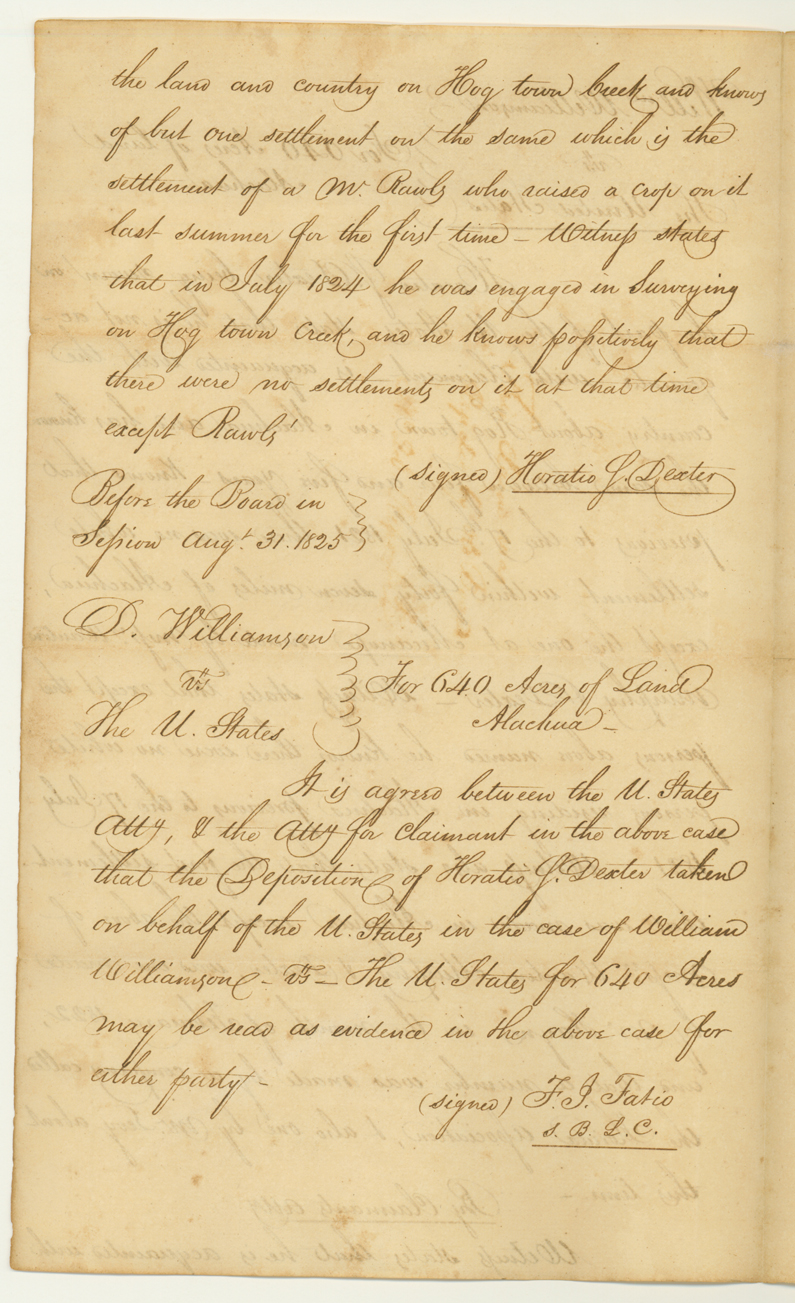 the land and country on Hog town Creek and knows
of but one settlement on the same which is the
settlement of a Mr. Rawls who raised a crop on it
last summer for the first time – Witness states
that in July 1824 he was engaged in Surveying
on Hog town Creek, and he knows possitively that
there were no settlements on it at that time
except Rawls'
(signed) Horatio G. Dexter
Before the Board in
Session Augt. 31. 1825
D. Williamson
vs
The U. States
For 640 Acres of Land
Alachua –
It is agreed between the U. States
Atty, & the Atty for Claimant in the above case
that the Deposition of Horatio G. Dexter taken
on behalf of the U. States in the case of William
Williamson – vs – The U. States for 640 Acres
may be read as evidence in the above case for
either party –
(signed) F. J. Fatio
S. B. L. C.